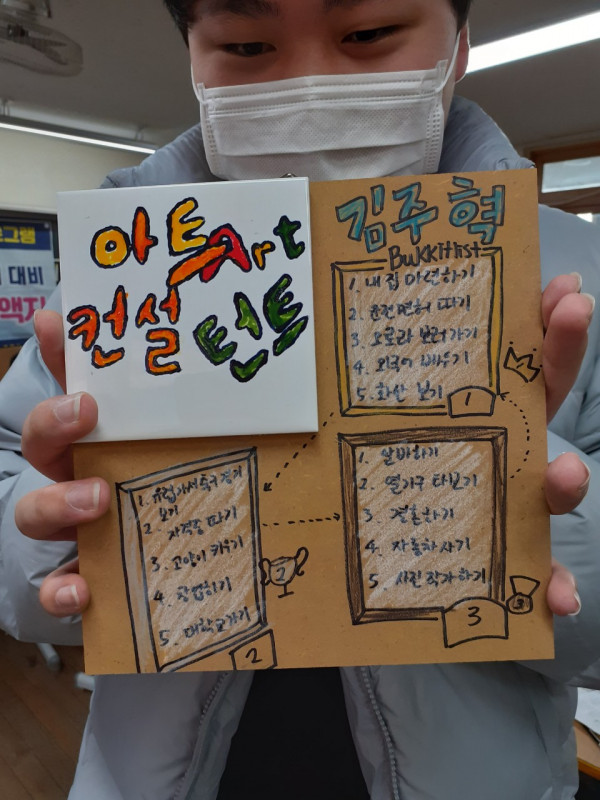 아트Art
컨설턴트
김주혁
Bukkitlist
1. 내 집 마련하기
2. 운전면허 따기
3. 오로라 보러가기
4. 외국어 배우기
5. 화산 보기
1
1. 유럽가서 축구 경기
보기
2. 자격증 따기
3. 고양이 키우기
4. 창업하기
5. 대학교가기
2
1. 알바하기
2. 열기구 타보기
3. 결혼하기
4. 자동차 사기
5. 사진작가하기
3
대비